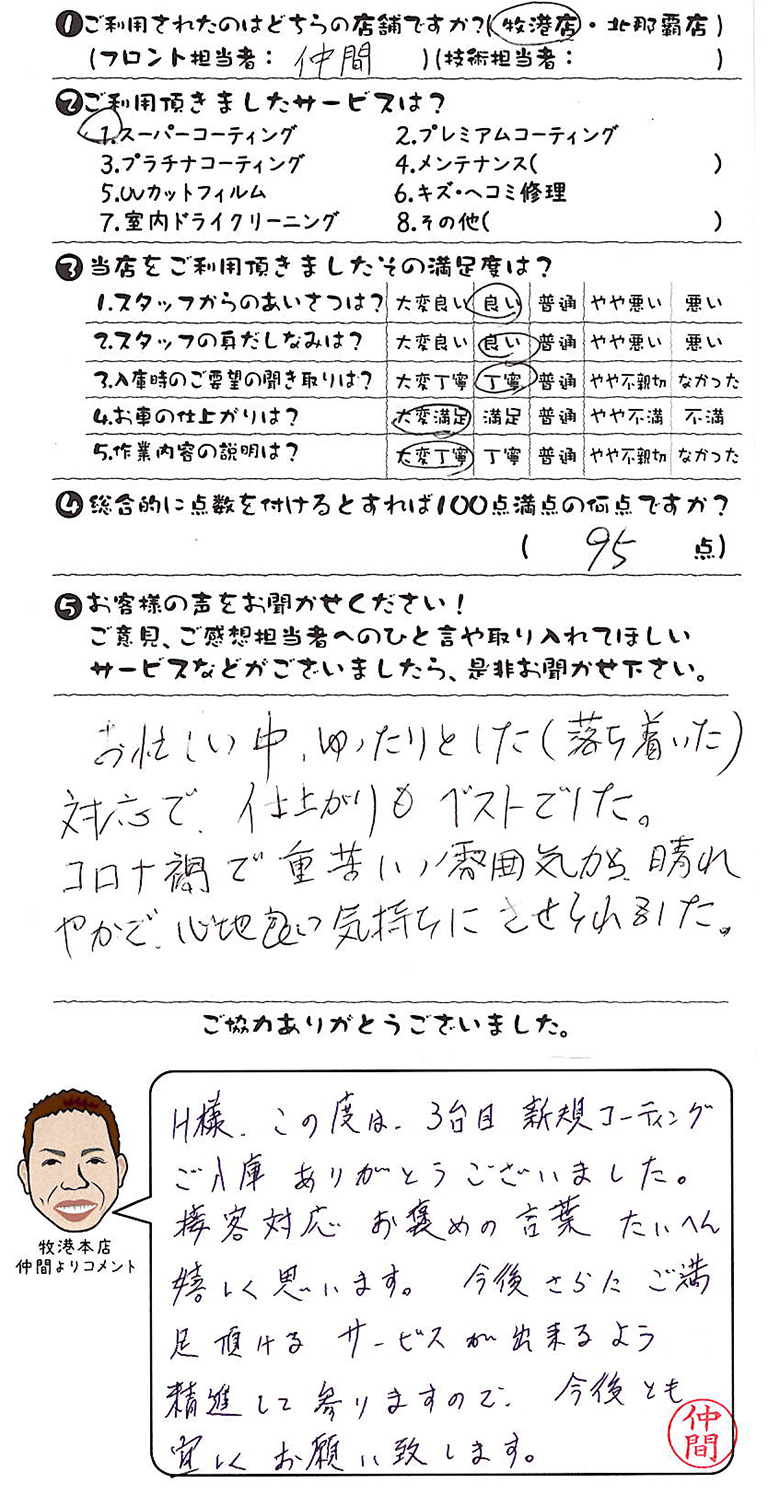 ❶ご利用されたのはどちらの店舗ですか?(牧港店・北那覇店)
(フロント担当者: 仲間 )(技術担当者: )
❷ご利用頂きましたサービスは?
1.スーパーコーティング 2.プレミアムコーティング
3.プラチナコーティング 4.メンテナンス( )
5.UVカットフィルム 6.キズ・ヘコミ修理
7.室内ドライクリーニング 8.その他( )
❸当店をご利用頂きましたその満足度は?
1.スタッフからのあいさつは? 大変良い 良い 普通 やや悪い 悪い
2.スタッフの身だしなみは? 大変良い 良い 普通 やや悪い 悪い
3.入庫時のご要望の聞き取りは? 大変丁寧 丁寧 普通 やや不親切 なかった
4.お車の仕上がりは? 大変満足 満足 普通 やや不満 不満
5.作業内容の説明は? 大変丁寧 丁寧 普通 やや不親切 なかった
❹総合的に点数を付けるとすれば100点満点の何点ですか?
( 95 点)
❺お客様の声をお聞かせください!
ご意見、ご感想担当者へのひと言や取り入れてほしい
サービスなどがございましたら、是非お聞かせ下さい。
お忙しい中、ゆったりとした(落ち着いた)
対応で、仕上がりも ベストでした。
コロナ禍で重苦しい雰囲気から、晴れ
やかで、心地良い気持ちにさせられました。
ご協力ありがとうございました。
H様、この度は、3台目 新規コーティング
ご入庫 ありがとうございました。
接客対応 お褒めの言葉 たいへん
嬉しく思います。 今後さらにご満
足頂ける サービスが出来るよう
精進して参りますので、今後とも
宜しくお願い致します。
仲間
牧港本店
仲間よりコメント